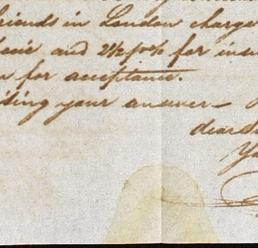 friends in London charge
and 2½ pct for insu
for acceptance.
your answer —
dear S
Yo